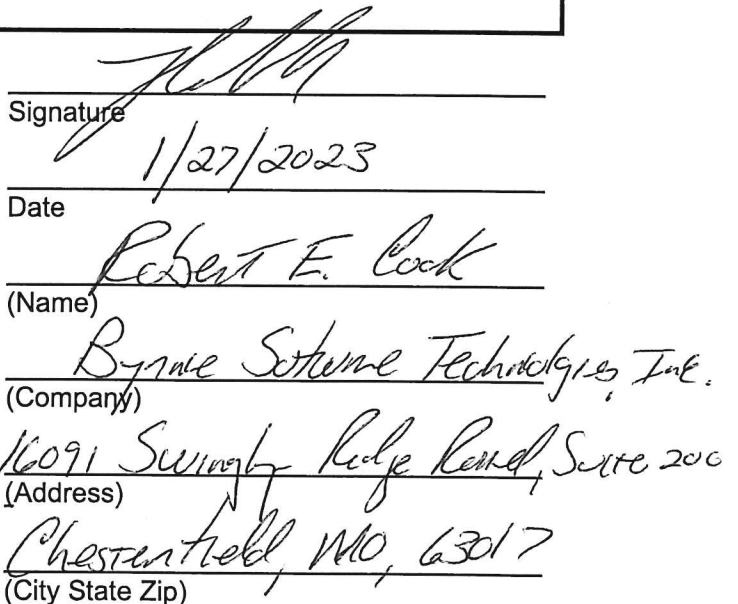 Signature
1/27/2023
Date
Robert E. Cook
(Name)
Byrne Software Technologies, Inc.
(Company)
16091 Swingley Ridge Road, Suite 200
(Address)
Chesterfield, MO, 63017
(City State Zip)